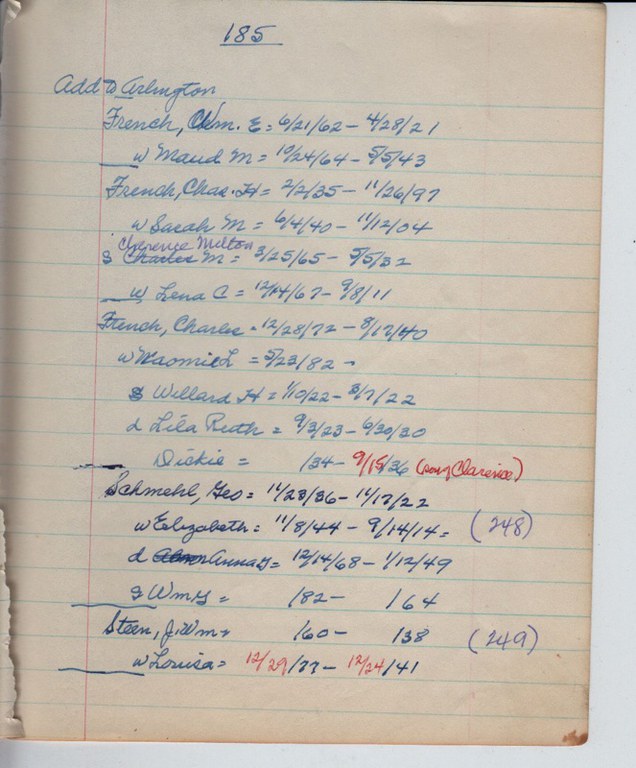 185
Add to Arlington
French, Wm. E = 6/21/62 - 4/28/21
w Maud M = 10/24/64 - 5/5/43
French, Chas. H = 2/2/35 - 11/26/97
w Sarah M = 6/4/40 - 11/12/04
Clarence Milton
s Charles M = 3/25/65 - 5/5/32
w Lena C = 12/14/67 - 9/8/11
French, Charles - 12/28/72 - 8/17/40
w Naomie L = 5/23/82 -
s Willard H = 1/10/22 - 3/7/22
d Lila Ruth = 9/3/23 - 6/30/30
Dickie = /34 - 9/15/36 (son of Clarence)
Schmehl, Geo = 11/23/36 - 11/17/22
w Elizabeth = 11/8/44 - 9/14/14 = (248)
d Anna G = 12/14/68 - 1/12/49
s Wm G = /82 - /64
Steen, J. Wm = /60 - /38 (249)
w Louisa = 12/29/77 - 12/24/41